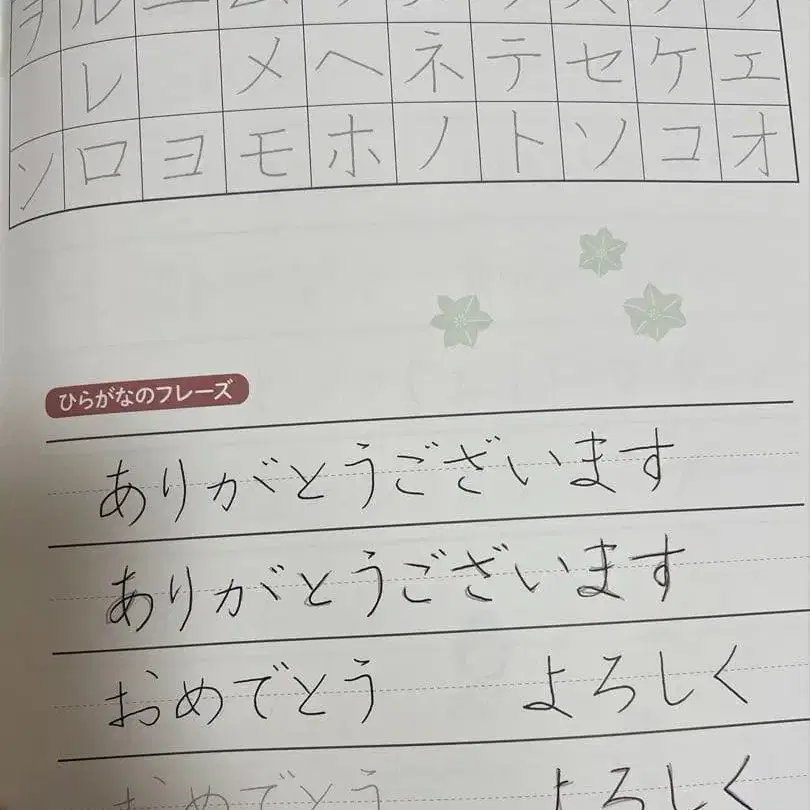 ヲ ル
レ メ ヘ ネ テ セ ケ エ
ン ロ ヨ モ ホ ノ ト ソ コ オ
ひらがなのフレーズ
ありがとうございます
ありがとうございます
おめでとう よろしく
おめでとう よろしく